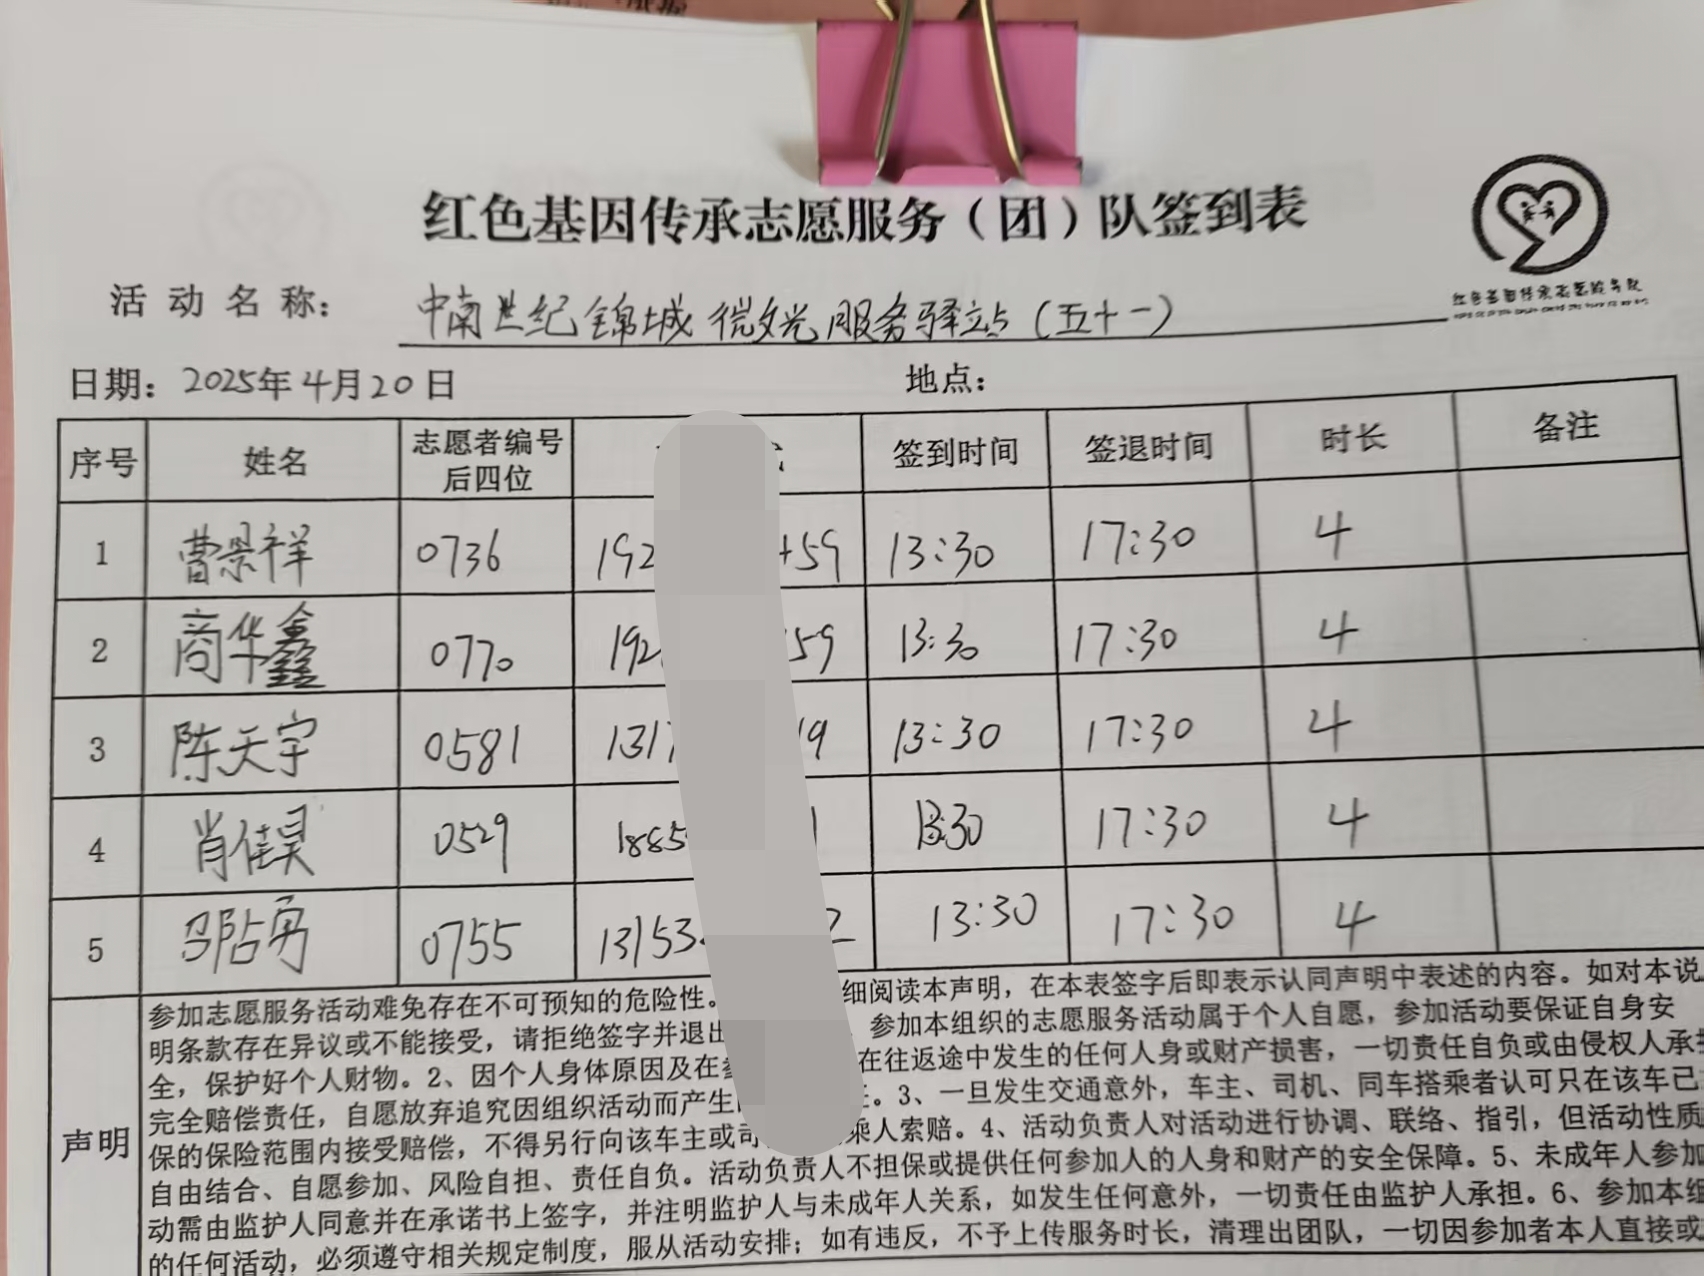 红色基因传承志愿服务（团）队签到表
活动名称： 中南世纪锦城微光服务驿站（五十一）
日期：2025年4月20日 地点：
序号 姓名 志愿者编号后四位 签到时间 签退时间 时长 备注
1 曹景祥 0736 192 59 13:30 17:30 4
2 商华鑫 0770 192 59 13:30 17:30 4
3 陈天宇 0581 1317 19 13:30 17:30 4
4 肖佳昊 0529 1885 1 13:30 17:30 4
5 邵占勇 0755 13153 2 13:30 17:30 4
声明
参加志愿服务活动难免存在不可预知的危险性。 细阅读本声明，在本表签字后即表示认同声明中表述的内容。如对本说
明条款存在异议或不能接受，请拒绝签字并退出 参加本组织的志愿服务活动属于个人自愿，参加活动要保证自身安
全，保护好个人财物。2、因个人身体原因及在 在往返途中发生的任何人身或财产损害，一切责任自负或由侵权人承
完全赔偿责任，自愿放弃追究因组织活动而产生 。3、一旦发生交通意外，车主、司机、同车搭乘者认可只在该车已
保的保险范围内接受赔偿，不得另行向该车主或司 乘人索赔。4、活动负责人对活动进行协调、联络、指引，但活动性质
自由结合、自愿参加、风险自担、责任自负。活动负责人不担保或提供任何参加人的人身和财产的安全保障。5、未成年人参加
动需由监护人同意并在承诺书上签字，并注明监护人与未成年人关系，如发生任何意外，一切责任由监护人承担。6、参加本组
的任何活动，必须遵守相关规定制度，服从活动安排；如有违反，不予上传服务时长，清理出团队，一切因参加者本人直接或